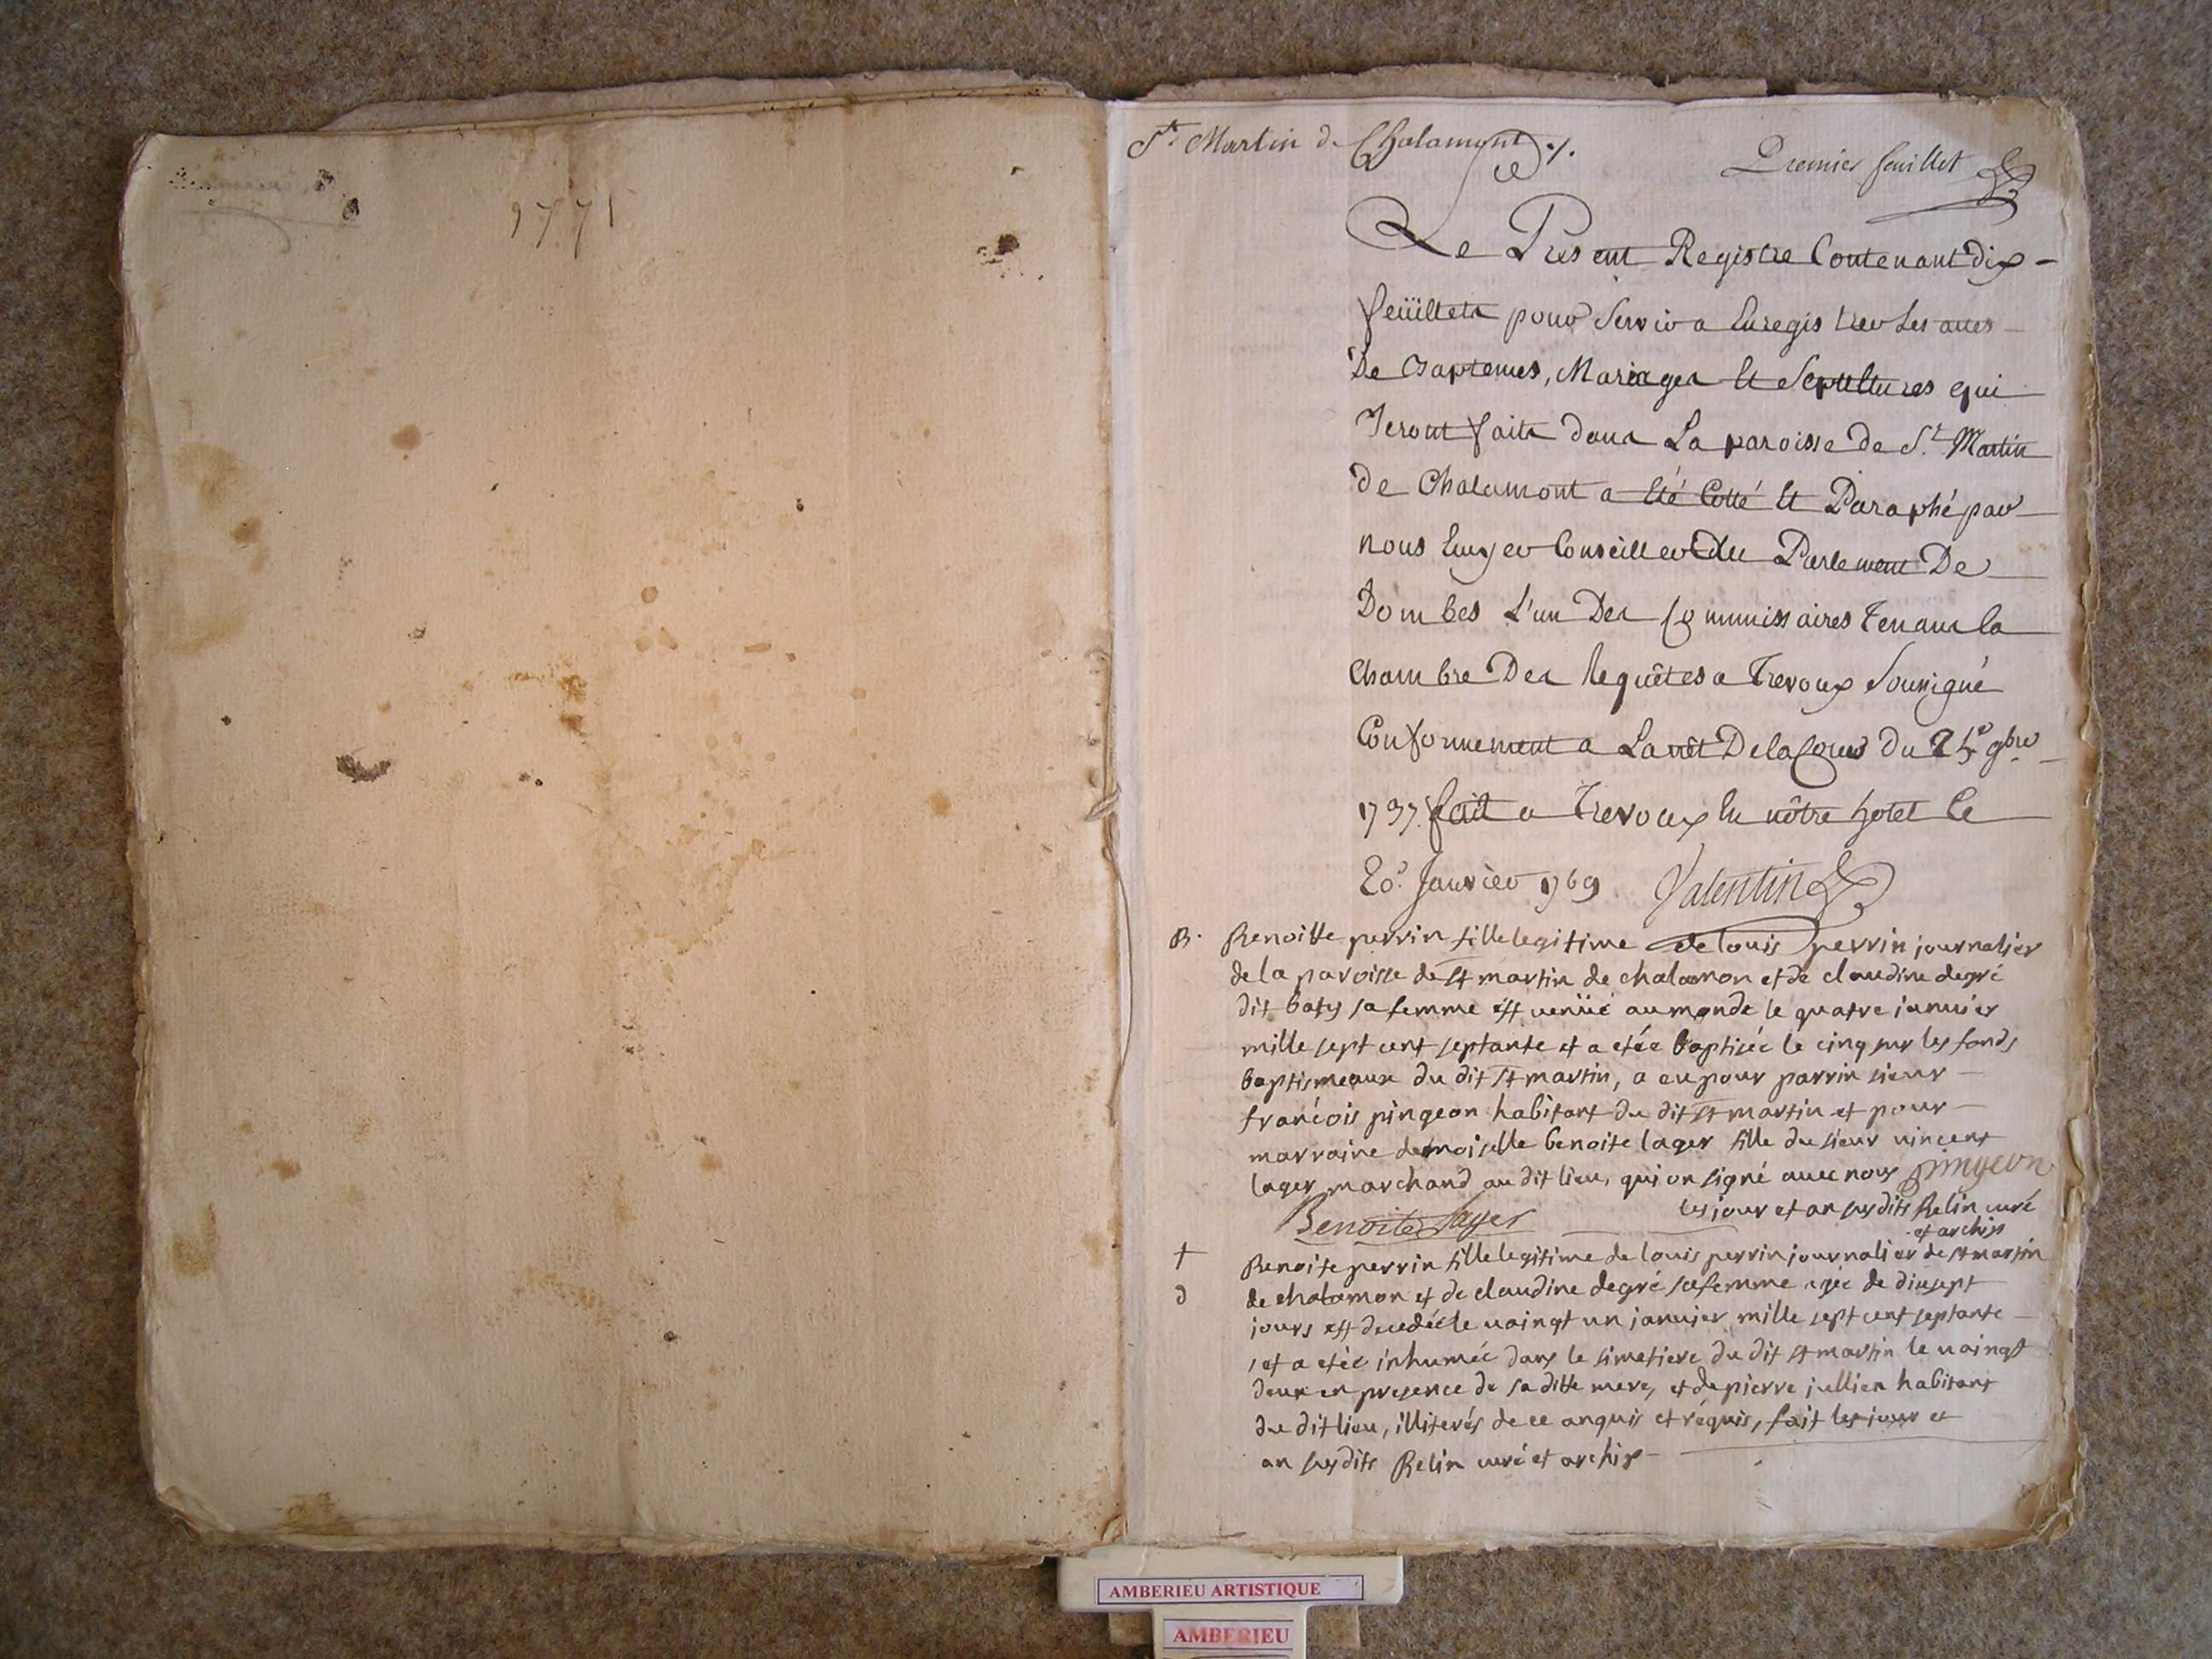 1771
St. Martin de Chalamont
Premier feuillet
Le Present Registre Contenant dix
feüillets pour Servir a Enregistrer Les actes
De Baptemes, Mariages Et Sepultures qui
Seront faits dans La paroisse de St. Martin
de Chalamont a Eté Cotté Et Paraphé par
nous Conseiller Du Parlement De
Dombes L'un Des Commissaires Tenans la
Chambre Des Requêtes a Trevoux Soussigné
Conformement a Larrêt De la Cour Du 9bre
1737 fait a Trevoux En nôtre hotel Le
20e Janvier 1769 Valentin
B. Benoitte perrin fille legitime de louis perrin journalier
de la paroisse de st martin de chalamon et de claudine degré
dit baty sa femme est venüe au monde le quatre ianvier
mille sept cent septante et a etée baptisée le cinq sur les fonds
baptismeaux du dit st martin, a eu pour parrin sieur
francois pingeon habitant du dit st martin et pour
marraine demoiselle benoite lager fille du sieur vincent
lager marchand au dit lieu, qui on signé avec nous pingeon
les jour et an susdits Belin curé
et archip
Benoite Lager
† Benoite perrin fille legitime de louis perrin journalier de st martin
d de chalamon et de claudine degré sa femme agée de dixsept
jours est decedée le vaingt un janvier mille sept cent septante
et a etée inhumée dans le simetiere du dit st martin le vaingt
deux en presence de sa ditte mere, et de pierre jullien habitant
du dit lieu, illiterés de ce anquis et réquis, fait les jour et
an susdits Belin curé et archip
AMBERIEU ARTISTIQUE
AMBERIEU